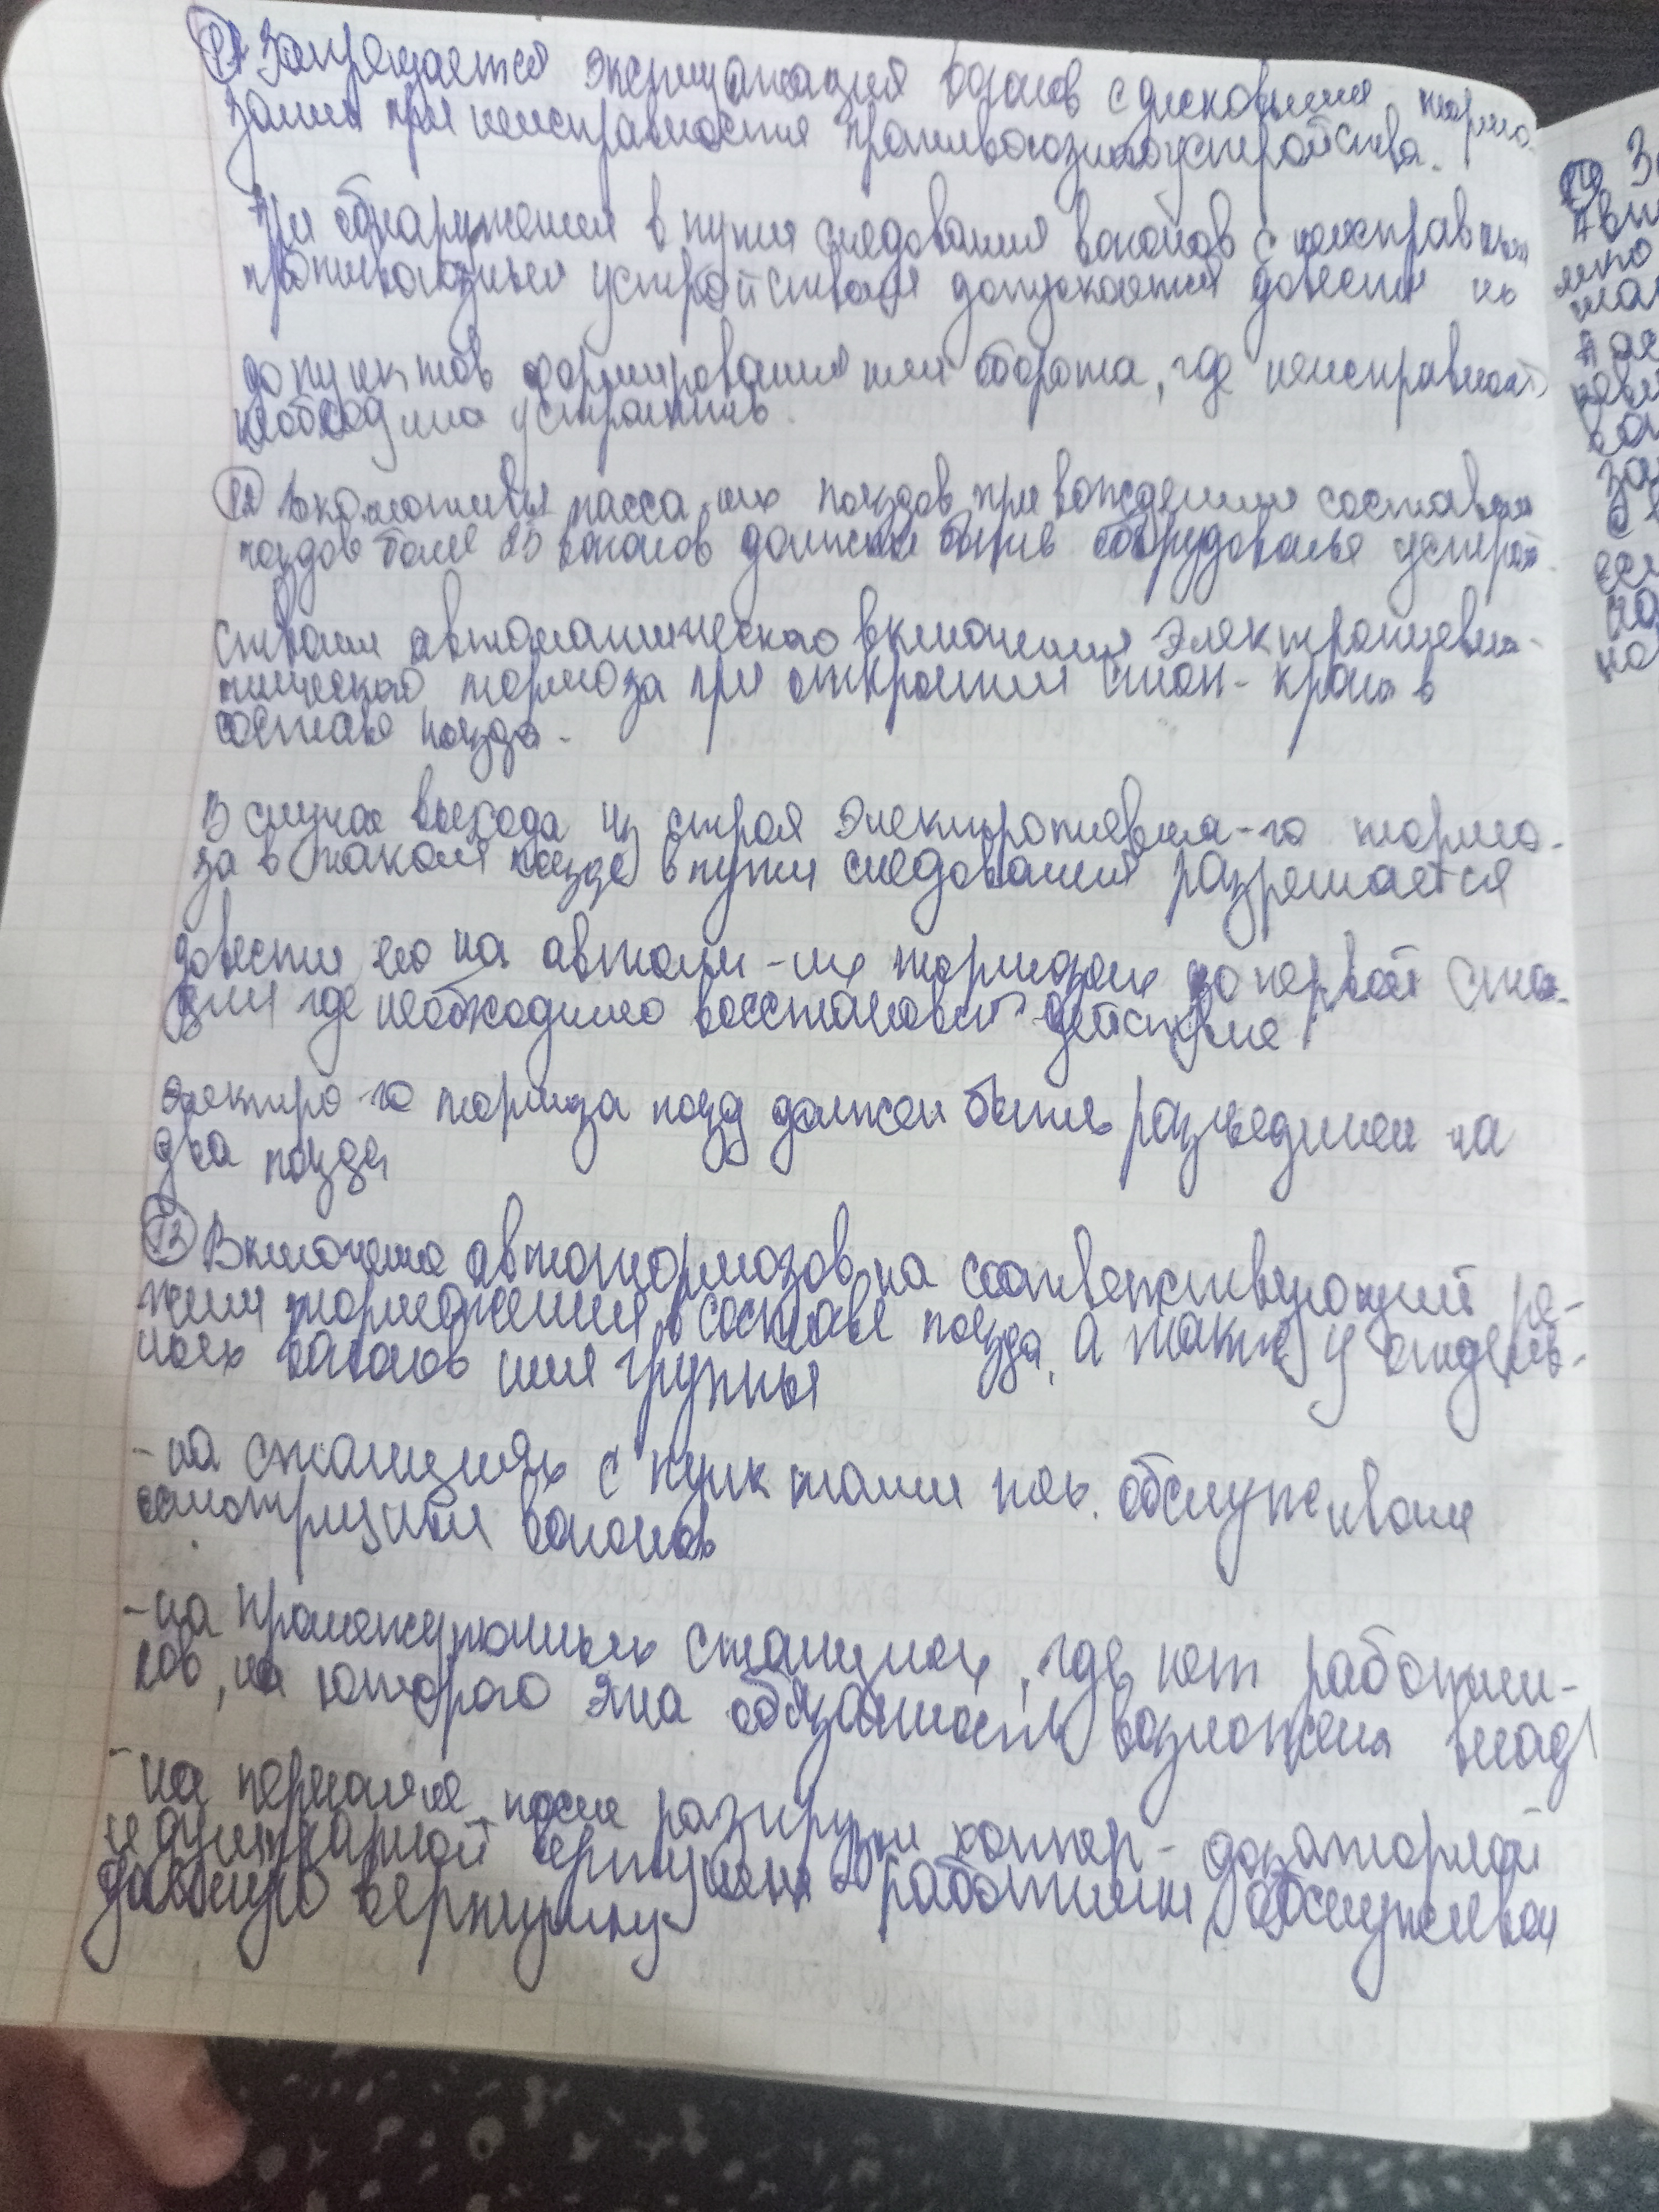 11 Запрещается эксплуатация вагонов с дисковыми тормо-
зами при неисправности противоюзного устройства.
При обнаружении в пути следования вагонов с неисправным
противоюзным устройствам допускается довести их
до пунктов формирования или оборота, где неисправность
необходимо устранить.
12 Локомотивы пасса-их поездов при вождении составом
поездов более 25 вагонов должны быть оборудованы устрой-
ствами автоматического включения электропневма-
тического тормоза при открытии стоп-крана в
составе поезда.
В случае выхода из строя электропневма-го тормо-
за в таком поезде в пути следования разрешается
довести его на автома-их тормозах до первой стан-
ции где необходимо восстановить действие
электро-го тормоза поезд должен быть разъединен на
два поезда
13 Включение автотормозов на соответствующий ре-
жим торможения в составе поезда, а также у отдель-
ных вагонов или группы
-на станциях с пунктами тех. обслуживание
осмотрщики вагонов
-на промежуточных станциях, где нет работни-
ков, на которого эта обязанность возложена
-на перегоне после разгрузки хоппер-дозаторной
и думпкарной вертушки работники, обслуживаю
данную вертушку